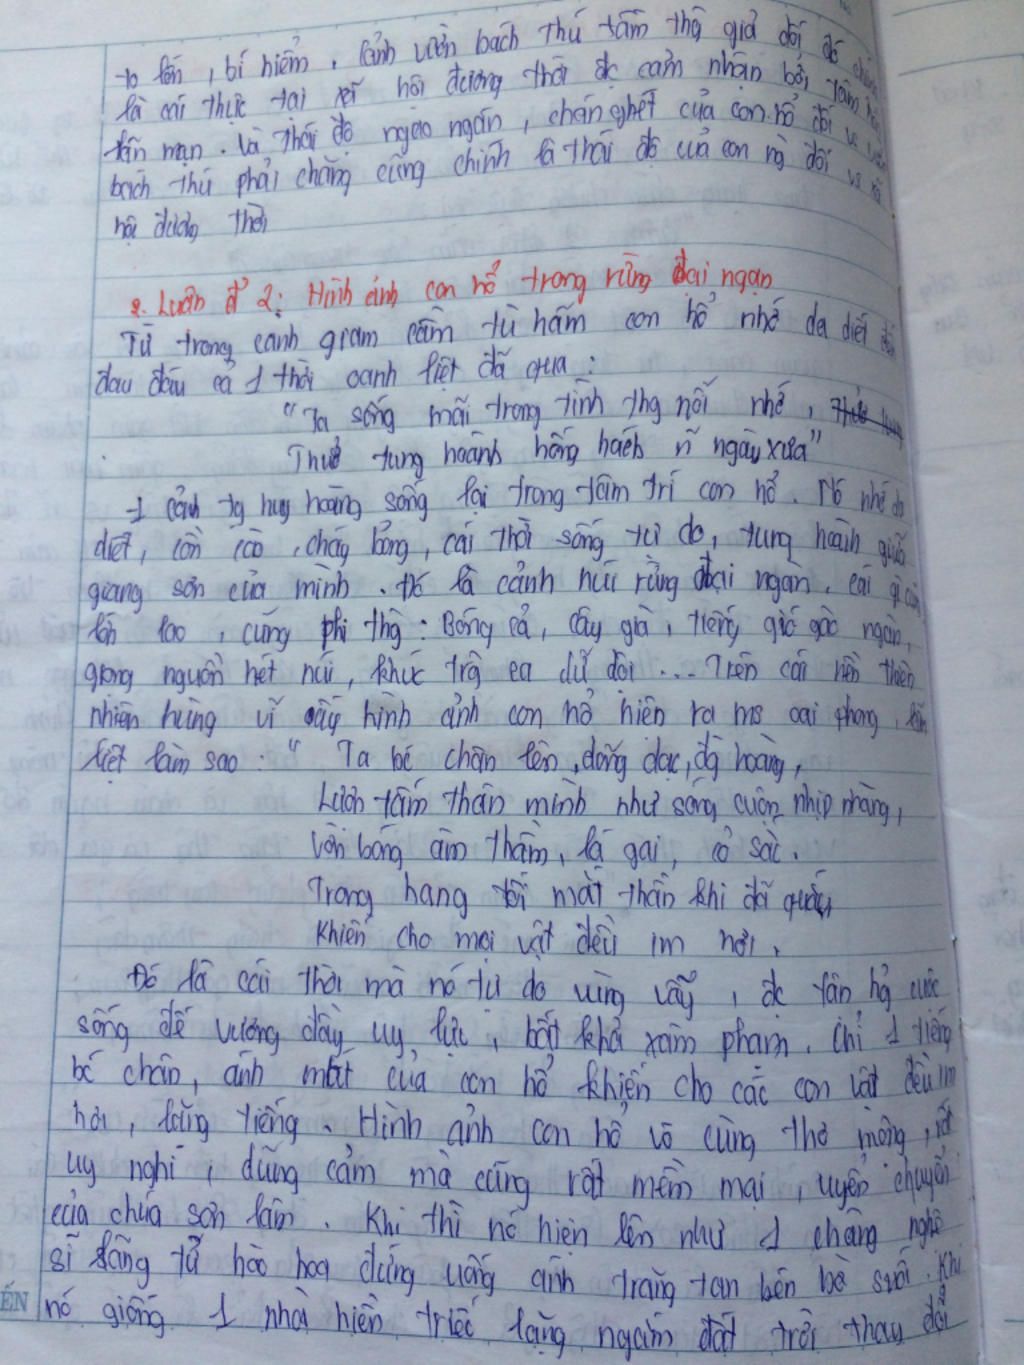 to lớn, bí hiểm. Cảnh vườn bách thú tầm thg giả dối đó chính
là cái thực tại xã hội đương thời đc cảm nhận bởi tâm hồn
lãn mạn. Và thái độ ngao ngán, chán ghét của con hổ đối vs vườn
bách thú phải chăng cũng chính là thái độ của con ng đối vs xã
hội đương thời
2. Luận đ' 2: Hình ảnh con hổ trong rừng đại ngạn
Từ trong cảnh giam cầm tù hãm con hổ nhớ da diết đến
đau đáu cả 1 thời oanh liệt đã qua:
"Ta sống mãi trong tình thg nỗi nhớ,
Thuở tung hoành hống hách n~ ngày xưa"
1 cảnh tg huy hoàng sống lại trong tâm trí con hổ. Nó nhớ da
diết, cồn cào, cháy bỏng, cái thời sống tự do, tung hoành giữa
giang sơn của mình. Đó là cảnh núi rừng đại ngàn, cái gì cũng
lớn lao, cũng phi thg: Bóng cả, cây già, tiếng gió gào ngàn,
giọng nguồn hét núi, khúc trg ca dữ dội... Trên cái nền thiên
nhiên hùng vĩ ấy hình ảnh con hổ hiện ra ms oai phong, lẫm
liệt làm sao: " Ta bc chân lên, dõng dạc, đg hoàng,
Lượn tấm thân mình như sóng cuộn nhịp nhàng,
Vờn bóng âm thầm, lá gai, cỏ sắc.
Trong hang tối mắt thần khi đã quắc,
Khiến cho mọi vật đều im hơi.
Đó là cái thời mà nó tự do vùng vẫy, đc tận hg cuộc
sống đế vương đầy uy lực, bất khả xâm phạm. Chỉ 1 tiếng
bc chân, ánh mắt của con hổ khiến cho các con vật đều im
hơi, lặng tiếng. Hình ảnh con hổ vô cùng thơ mộng, rất
uy nghi, dũng cảm mà cũng rất mềm mại, uyển chuyển
của chúa sơn lâm. Khi thì nó hiện lên như 1 chàng nghệ
sĩ lãng tử hào hoa đứng uống ánh trăng tan bên bờ suối. Khi
ẾN
nó giống 1 nhà hiền triết lặng ngắm đất trời thay đổi